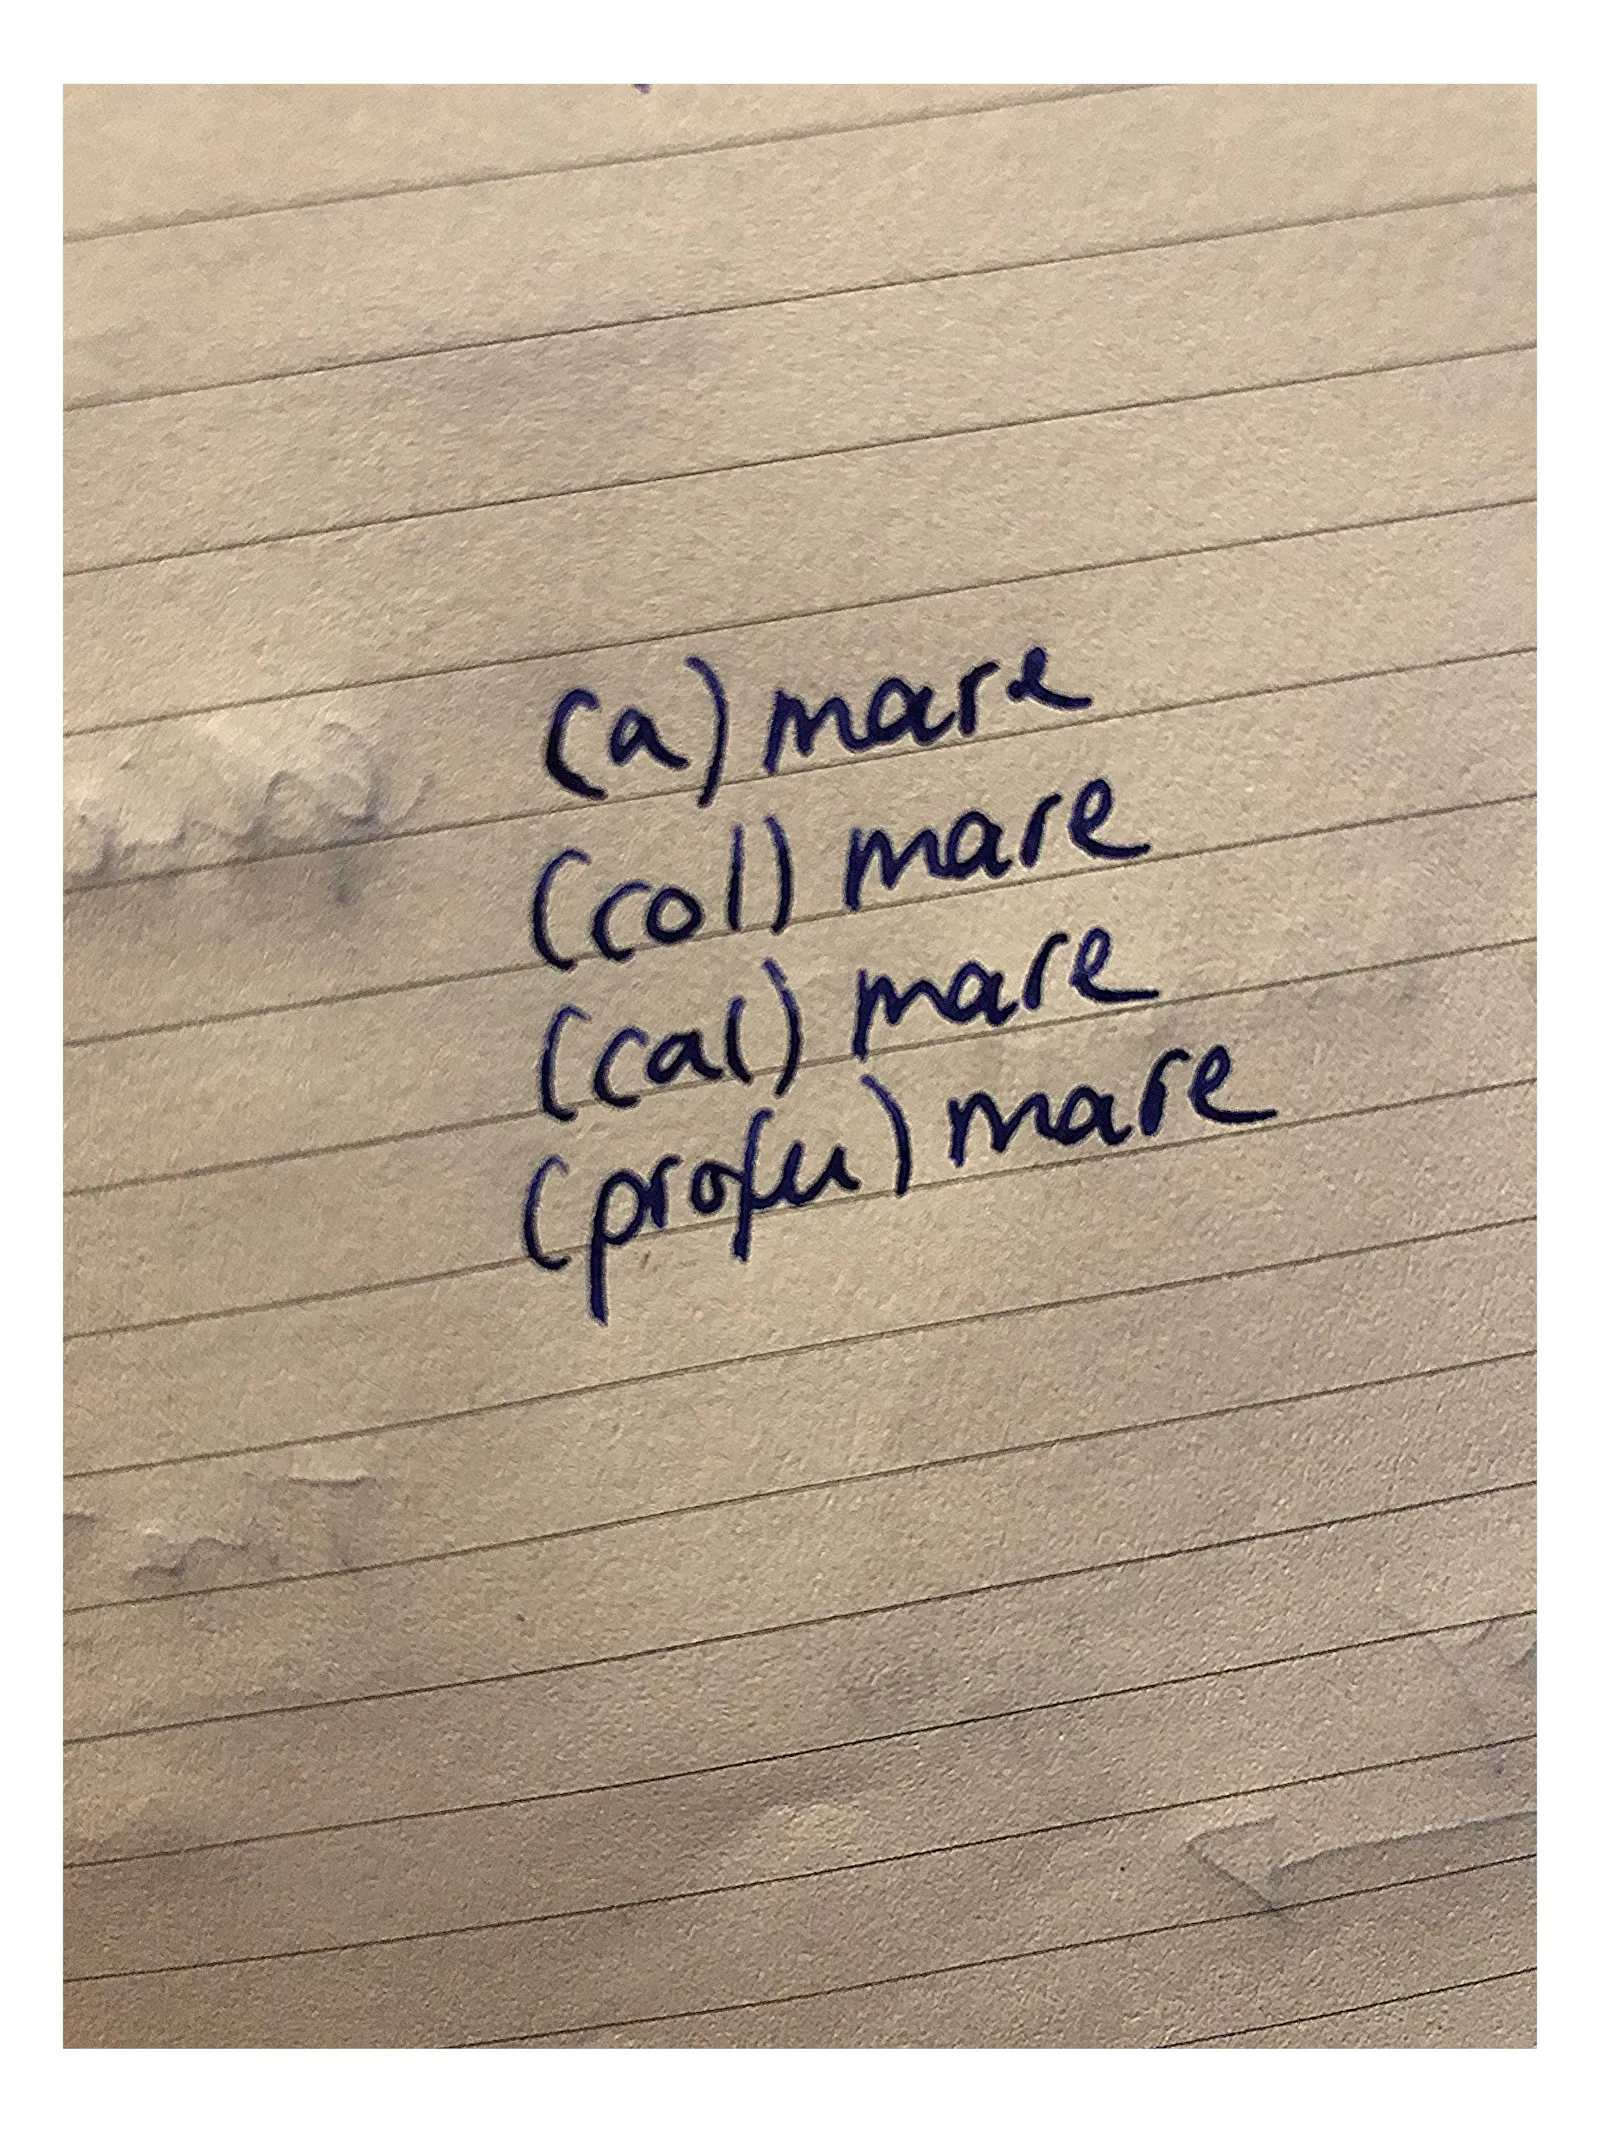 (a) mare
(col) mare
(cal) mare
(profu) mare